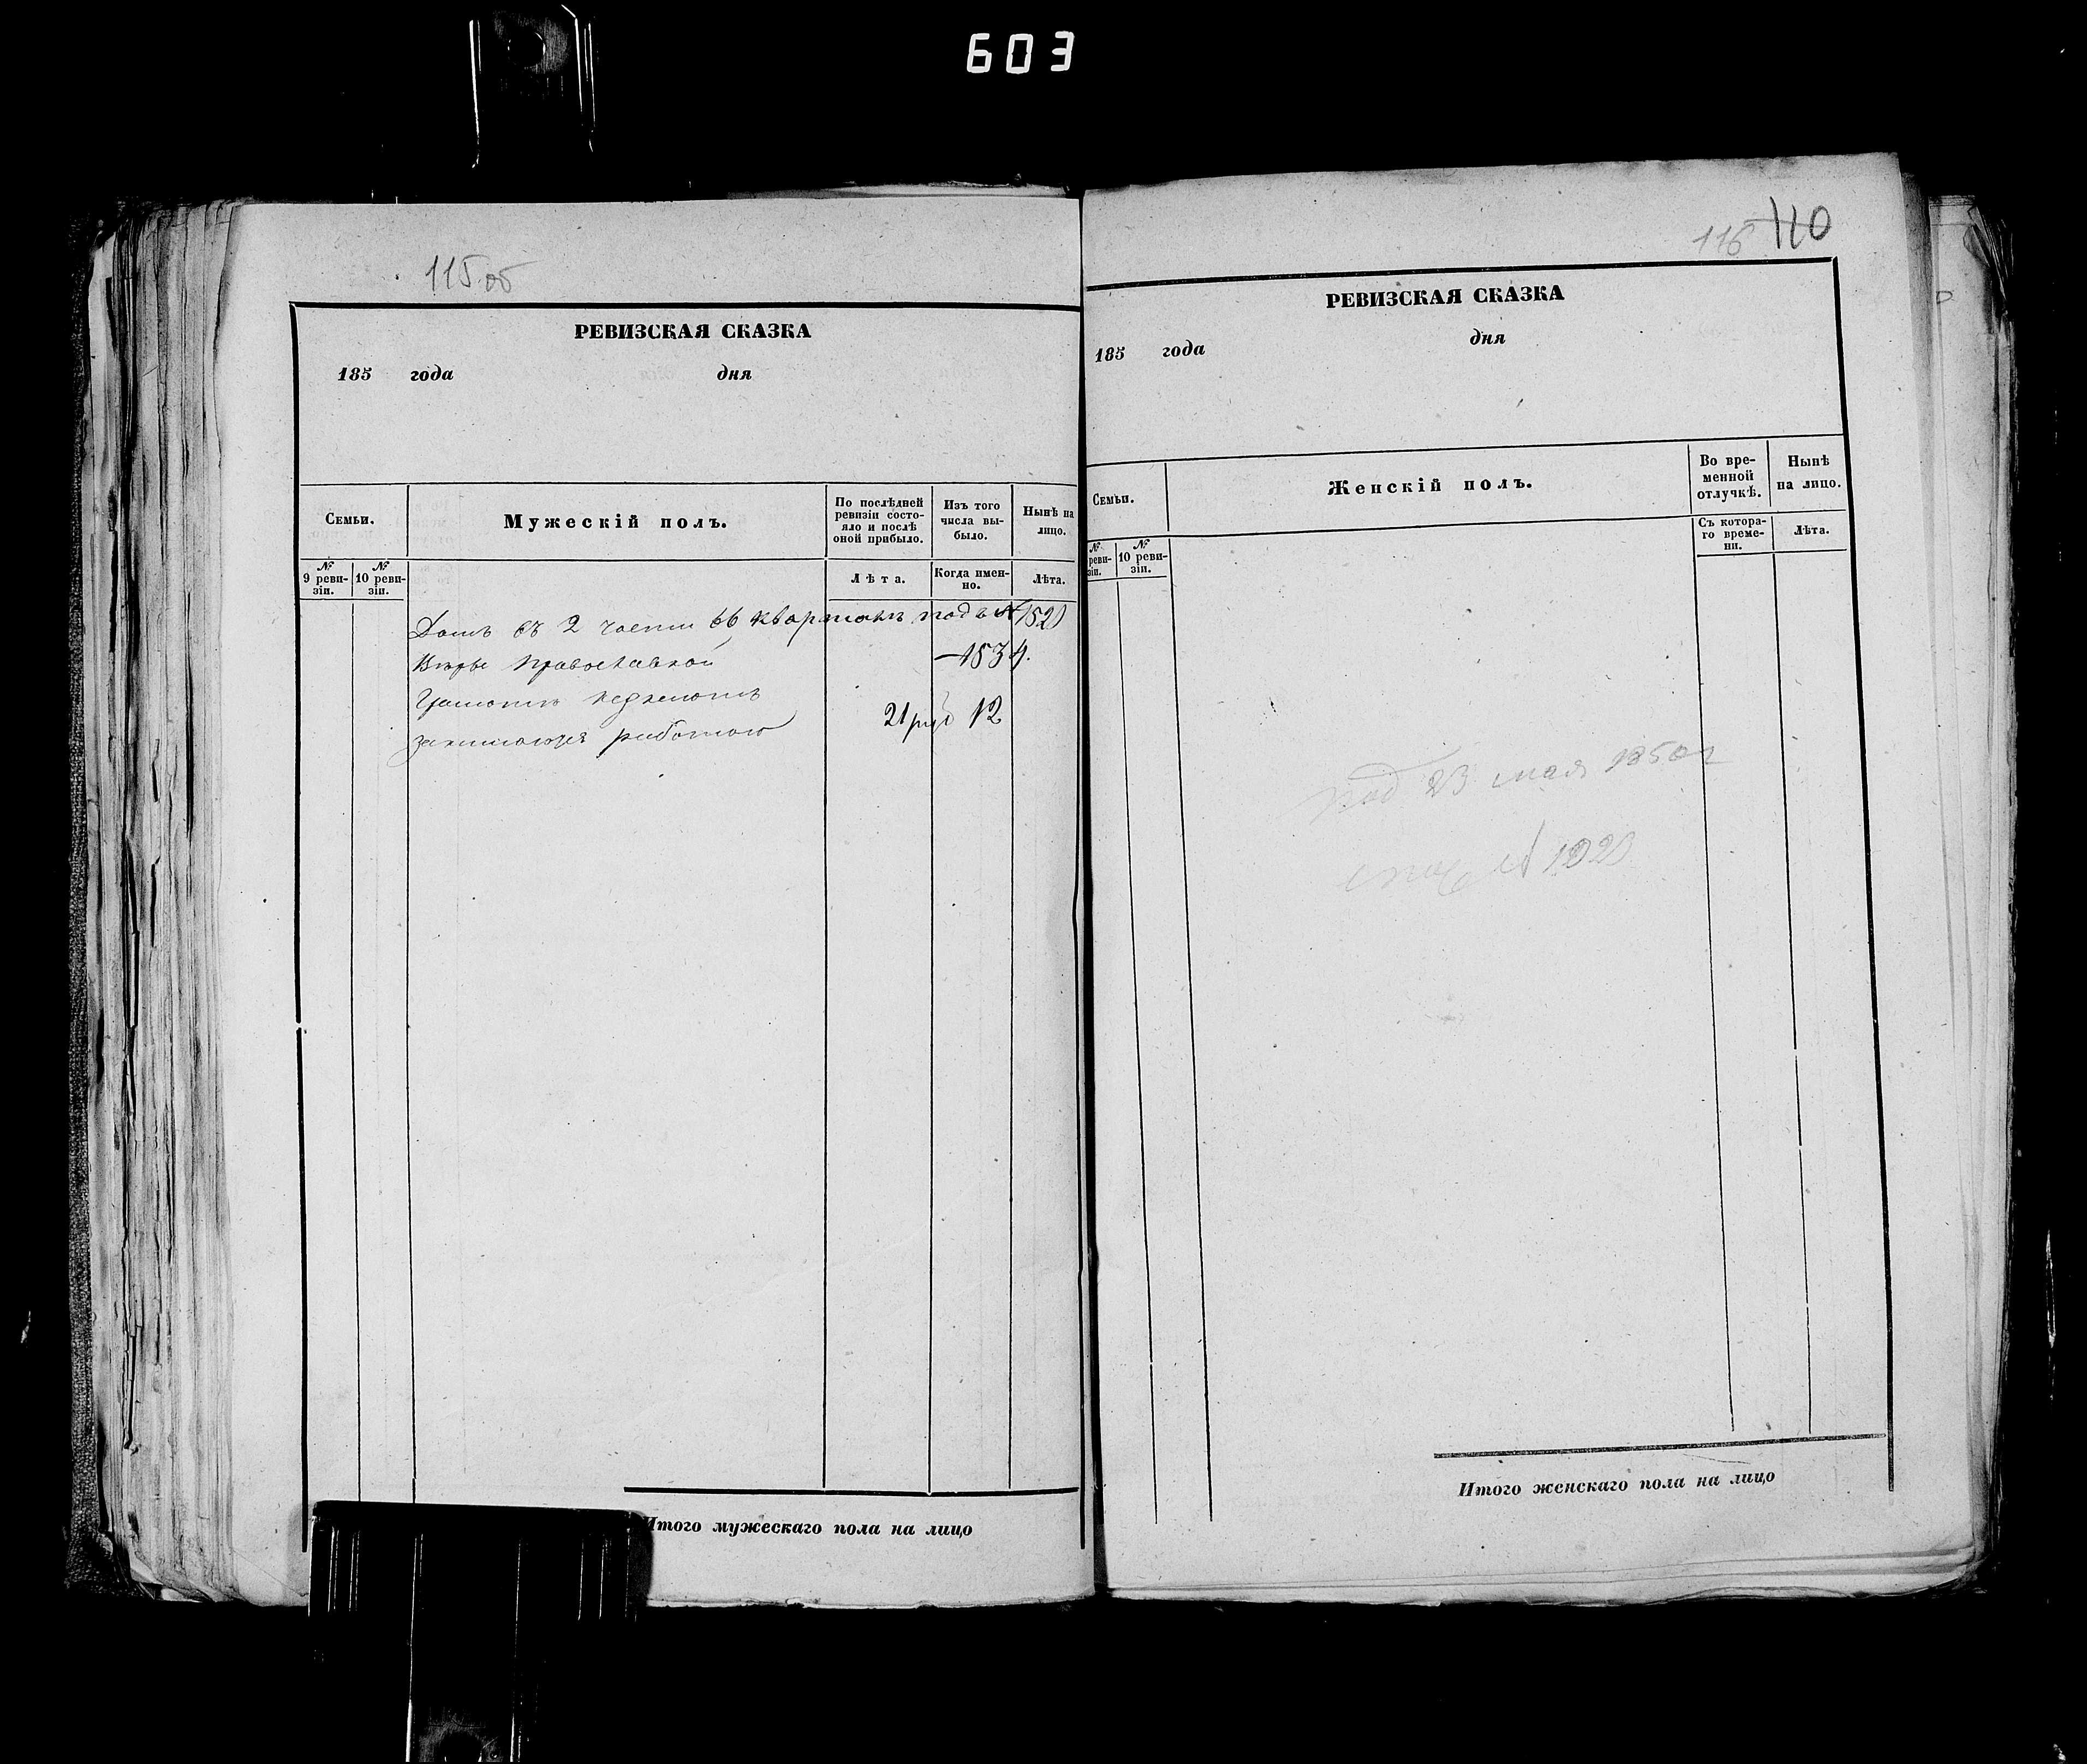 603
115 об
РЕВИЗСКАЯ СКАЗКА
185 года дня
Семьи.
Мужескій полъ.
По послѣдней ревизіи состо-
яло и послѣ
оной прибыло.
Изъ того
числа вы-
было.
Нынѣ на
лицо.
№
9 реви-
зіи.
№
10 реви-
зіи.
Лѣта.
Когда имен-
но.
Лѣта.
Домъ въ 2 части 66 кварталъ подъ № 1520
Вѣры православной 1534.
Грамотъ незнаютъ
занимаюся работою 21 руб 12
Итого мужескаго пола на лицо
116 110
РЕВИЗСКАЯ СКАЗКА
185 года дня
Семьи.
Женскій полъ.
Во вре-
менной
отлучкѣ.
Нынѣ
на лицо.
№
реви-
зіи.
№
10 реви-
зіи.
Съ котора-
го време-
ни.
Лѣта.
под 23 мая 1850 г
№ 1020
Итого женскаго пола на лицо